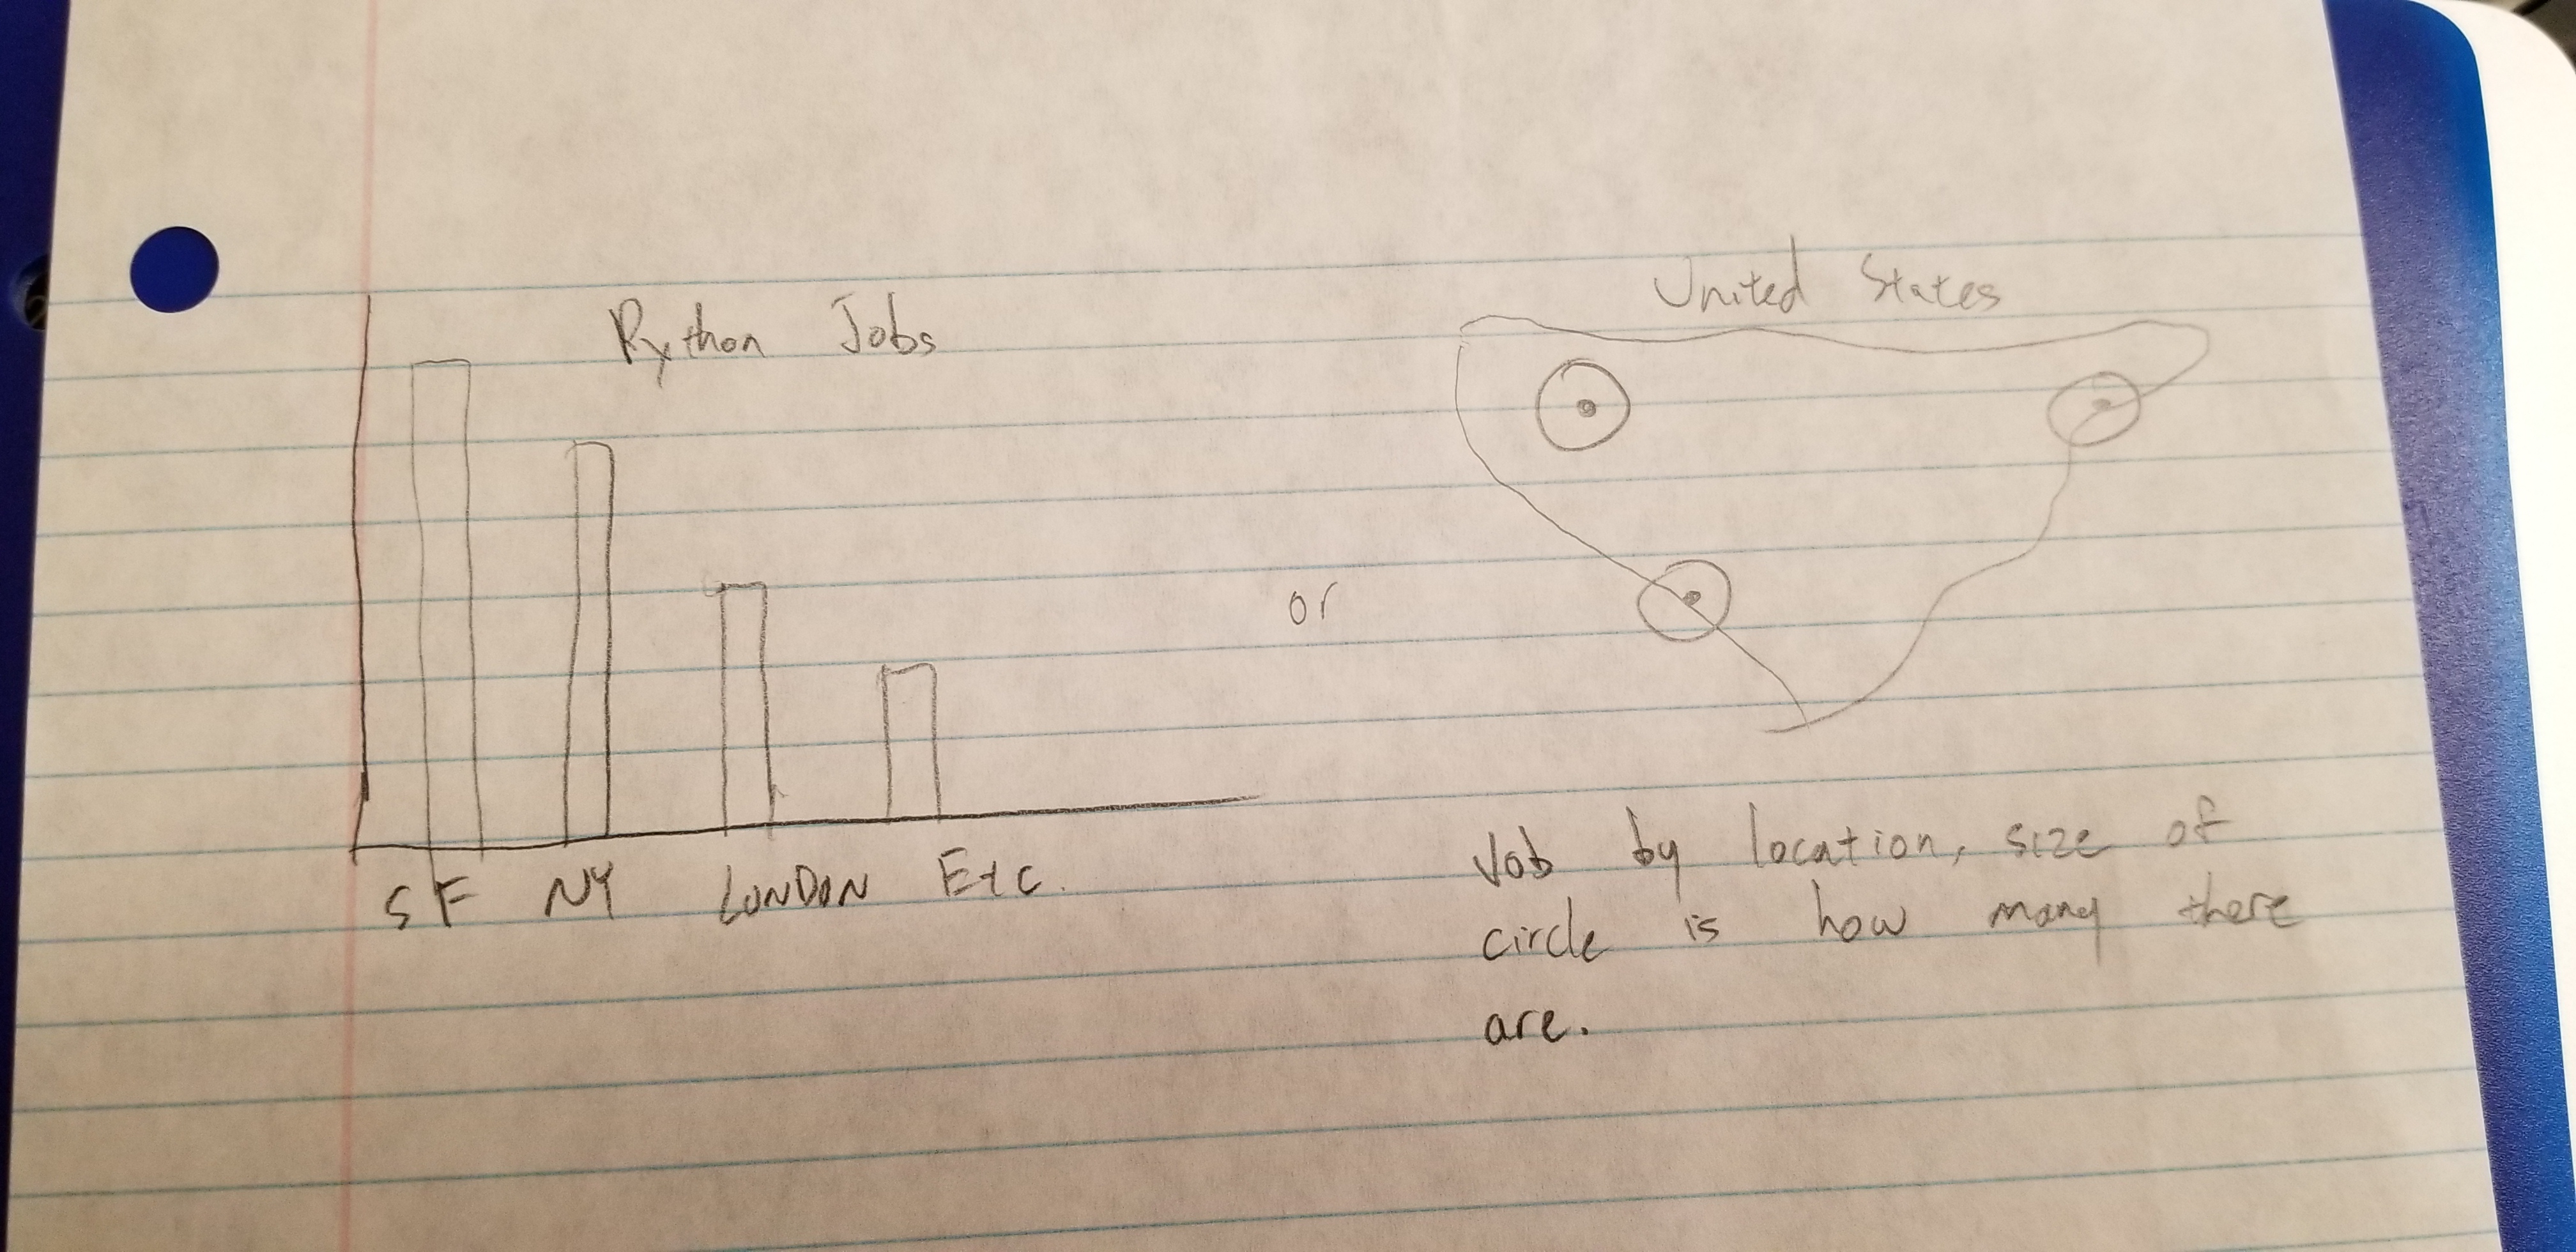 Python Jobs
SF NY LONDON Etc.
or
United States
Job by location, size of
circle is how many there
are.